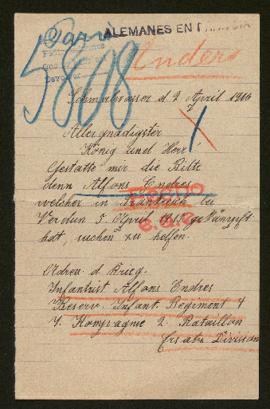 Paris
ALEMANES EN
5808
Enders
d 2 April 1916
Allergnädigster
König und Herr!
Gestatte mir die Bitte
denn Alfons Endres
welcher in Frankreich bei
Verdun 5 April 1915 gekämpft
hat, suchen zu helfen.
Adreu d. Krieg.
Infantrist Alfons Endres
Reserv. Infant. Regiment 4
4. Kompagnie 2. Bataillon
Ersatz Division